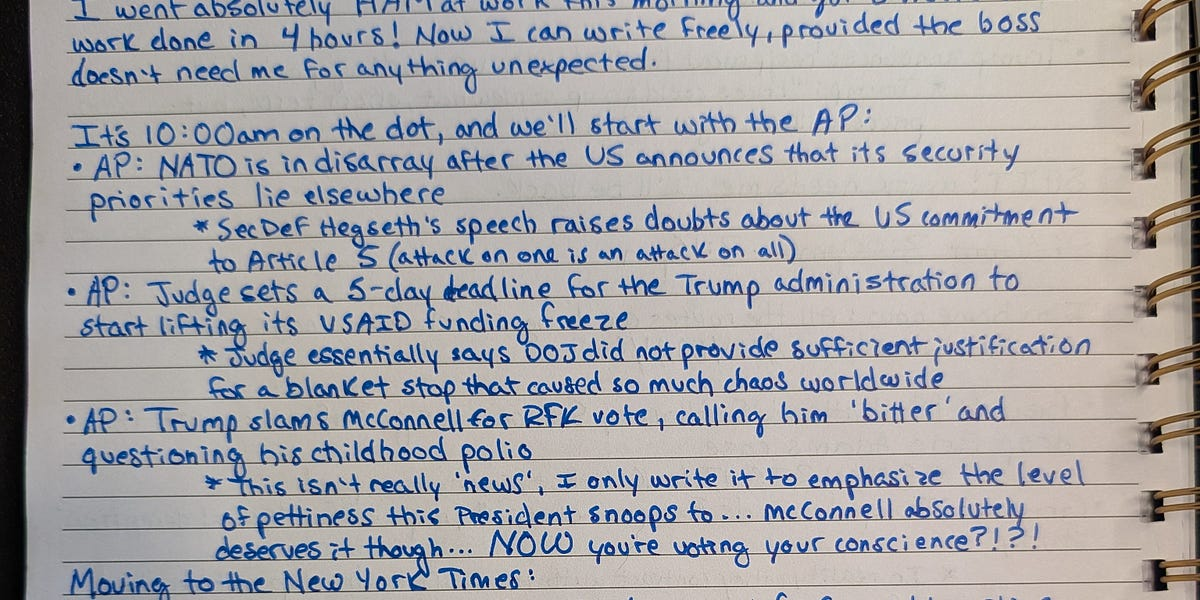 I went absolutely HAM at work this morning and
work done in 4 hours! Now I can write freely, provided the boss
doesn't need me for anything unexpected.
It's 10:00am on the dot, and we'll start with the AP:
• AP: NATO is in disarray after the US announces that its security
priorities lie elsewhere
* SecDef Hegseth's speech raises doubts about the US commitment
to Article 5 (attack on one is an attack on all)
• AP: Judge sets a 5-day deadline for the Trump administration to
start lifting its USAID funding freeze
* Judge essentially says DOJ did not provide sufficient justification
for a blanket stop that caused so much chaos worldwide
• AP: Trump slams McConnell for RFK vote, calling him 'bitter' and
questioning his childhood polio
* This isn't really 'news', I only write it to emphasize the level
of pettiness this President snoops to... McConnell absolutely
deserves it though... NOW you're voting your conscience?!?!
Moving to the New York Times: